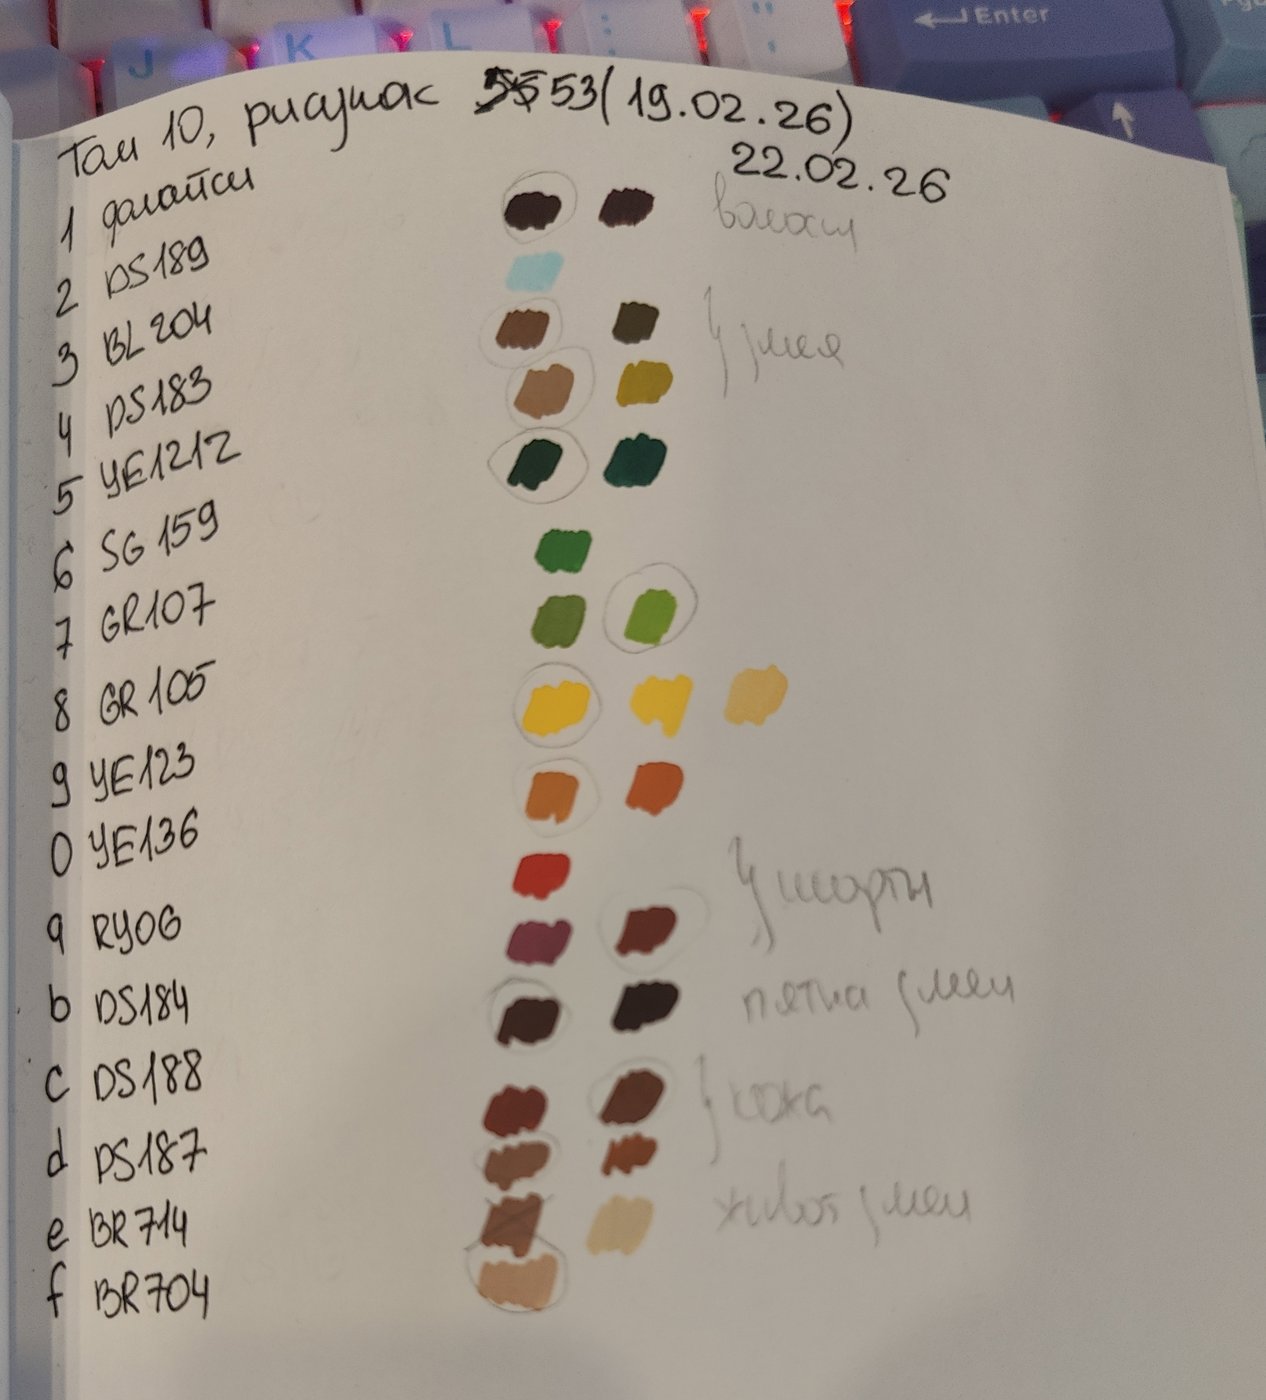 J K L : ; " ' Enter
Том 10, рисунок 53 (19.02.26)
22.02.26
1 далайси волосы
2 DS189
3 BL204 змея
4 DS183
5 YE1212
6 SG159
7 GR107
8 GR105
9 YE123
0 YE136 шорты
a RY06
b DS184 пятна змеи
c DS188 кожа
d DS187
e BR714 живот змеи
f BR704